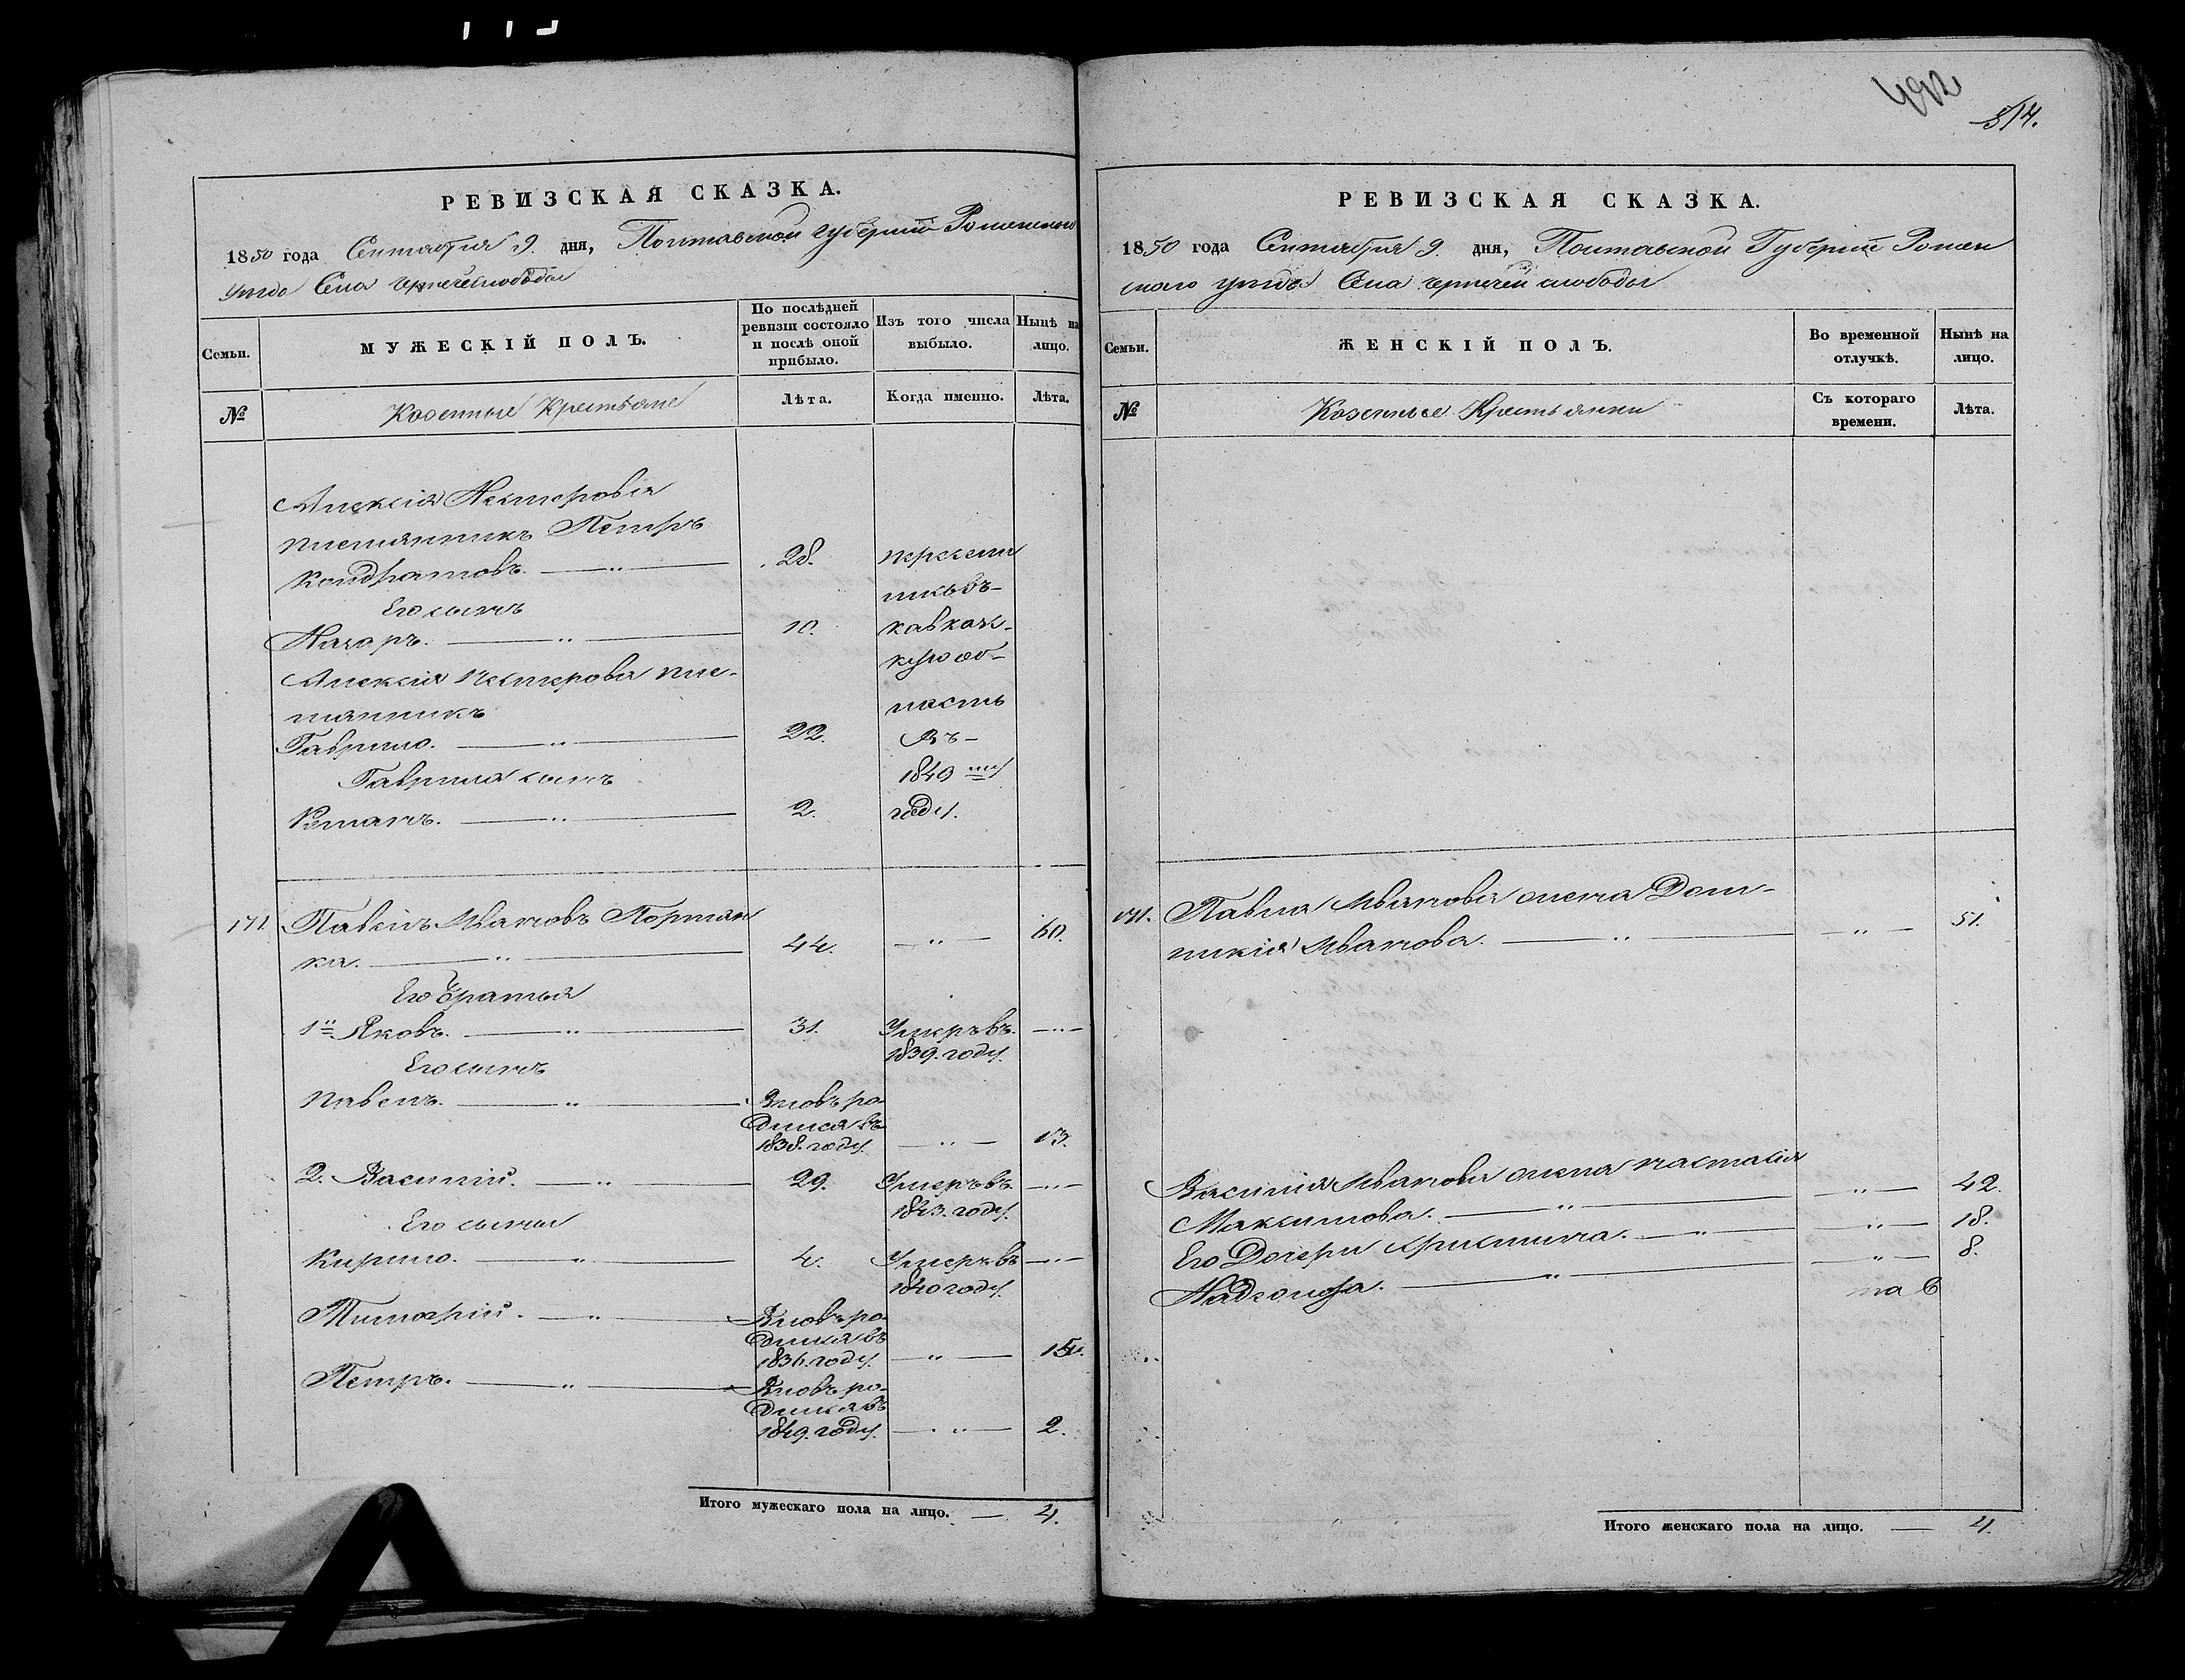 492
514.
РЕВИЗСКАЯ СКАЗКА.
1850 года Сентября 9. дня, Полтавской губерніи Роменского
уезда Села чернечеслободы
Семьи.
МУЖЕСКІЙ ПОЛЪ.
По послѣдней ревизіи состояло и послѣ оной прибыло.
Изъ того числа выбыло.
Нынѣ на лицо.
№
Козенные Крестьяне
Лѣта.
Когда именно.
Лѣта.
Алексія Нестеровія
племянникъ Петръ
Кондратовъ. — " — 28. пересели
Его сынъ лисьвъ-
Назаръ. — " — 10. кавказ-
Алексія Нестерова пле- кую об-
мянникъ ласть
Гаврило. — " — 22. въ-
Гаврила сынъ 1849 му
Романъ. — " — 2. году.
171. Павелъ Ивановъ Лорман
ка. — " — 44. — " — 60.
Его братья
1й Яковъ. — " — 31. Умеръ въ — " —
1839. году.
Его сынъ
Павелъ. — " — Вновь ро-
дился въ
1838. году. — " — 13.
2. Василий. — " — 29. Умеръ въ — " —
1843. году.
Его сыны
Кирило. — " — 4. Умеръ въ — " —
1840 году.
Тимофій. — " — Вновь ро-
дился въ
1836. году. — " — 15.
Петръ. — " — Вновь ро-
дился въ
1849. году. — " — 2.
Итого мужескаго пола на лицо. — 4.
РЕВИЗСКАЯ СКАЗКА.
1850 года Сентября 9. дня, Полтавской Губерніи Ромен
ского уезда Села чернечей слободы
Семьи.
ЖЕНСКІЙ ПОЛЪ.
Во временной отлучкѣ.
Нынѣ на лицо.
№
Козенные Крестьянки
Съ котораго времени.
Лѣта.
171. Павла Иванова жена Дом-
никія Иванова. — " — — " — 51.
Василия Иванова жена настасія
Максимова. — " — — " — 42.
Его Дочери Христина. — " — — " — 18.
Надзонфа. — " — — " — 8.
Итого женскаго пола на лицо. — 4.